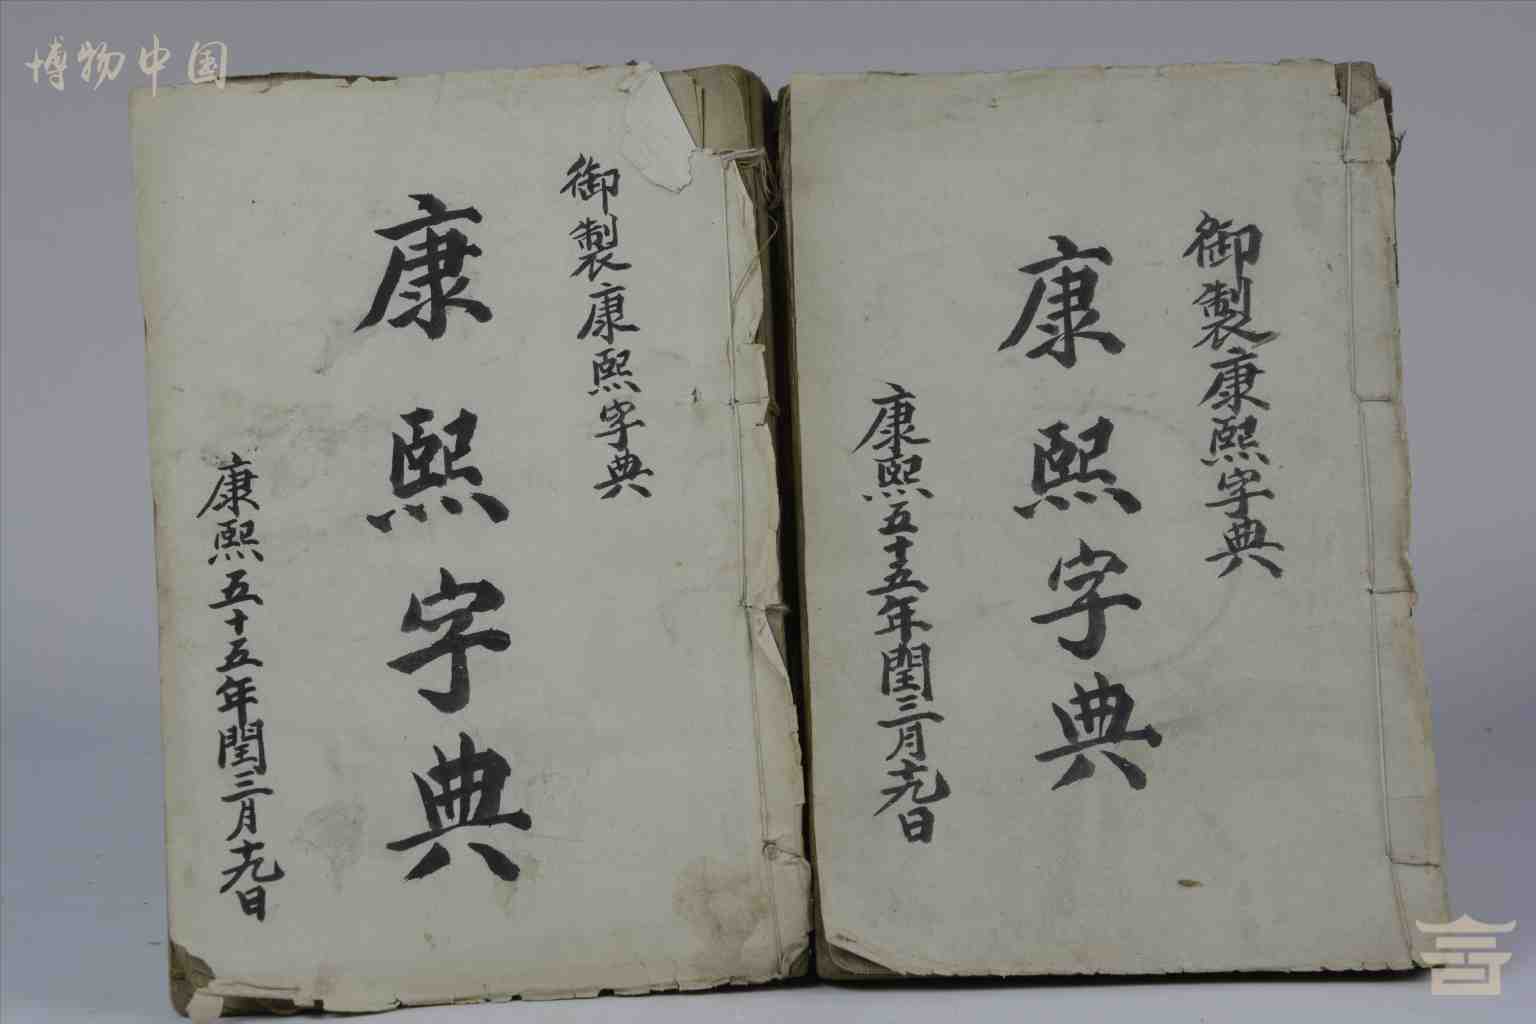 博物中国
御製康熙字典
康熙字典
康熙五十五年閏三月十九日
御製康熙字典
康熙字典
康熙五十五年閏三月十九日